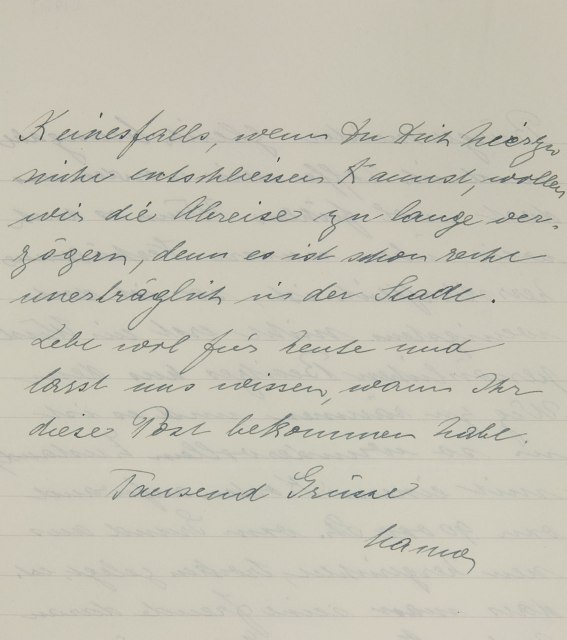 Keinesfalls, wenn Du Dich hierzu
nicht entschliessen kannst, wollen
wir die Abreise zu lange ver-
zögern, denn es ist schon recht
unerträglich in der Stadt.
Lebe wol für heute und
lasst uns wissen, wann Ihr
diese Post bekommen habt.
Tausend Grüsse